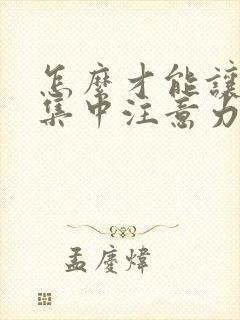 怎麼才能讓
集中注意力
孟慶煒